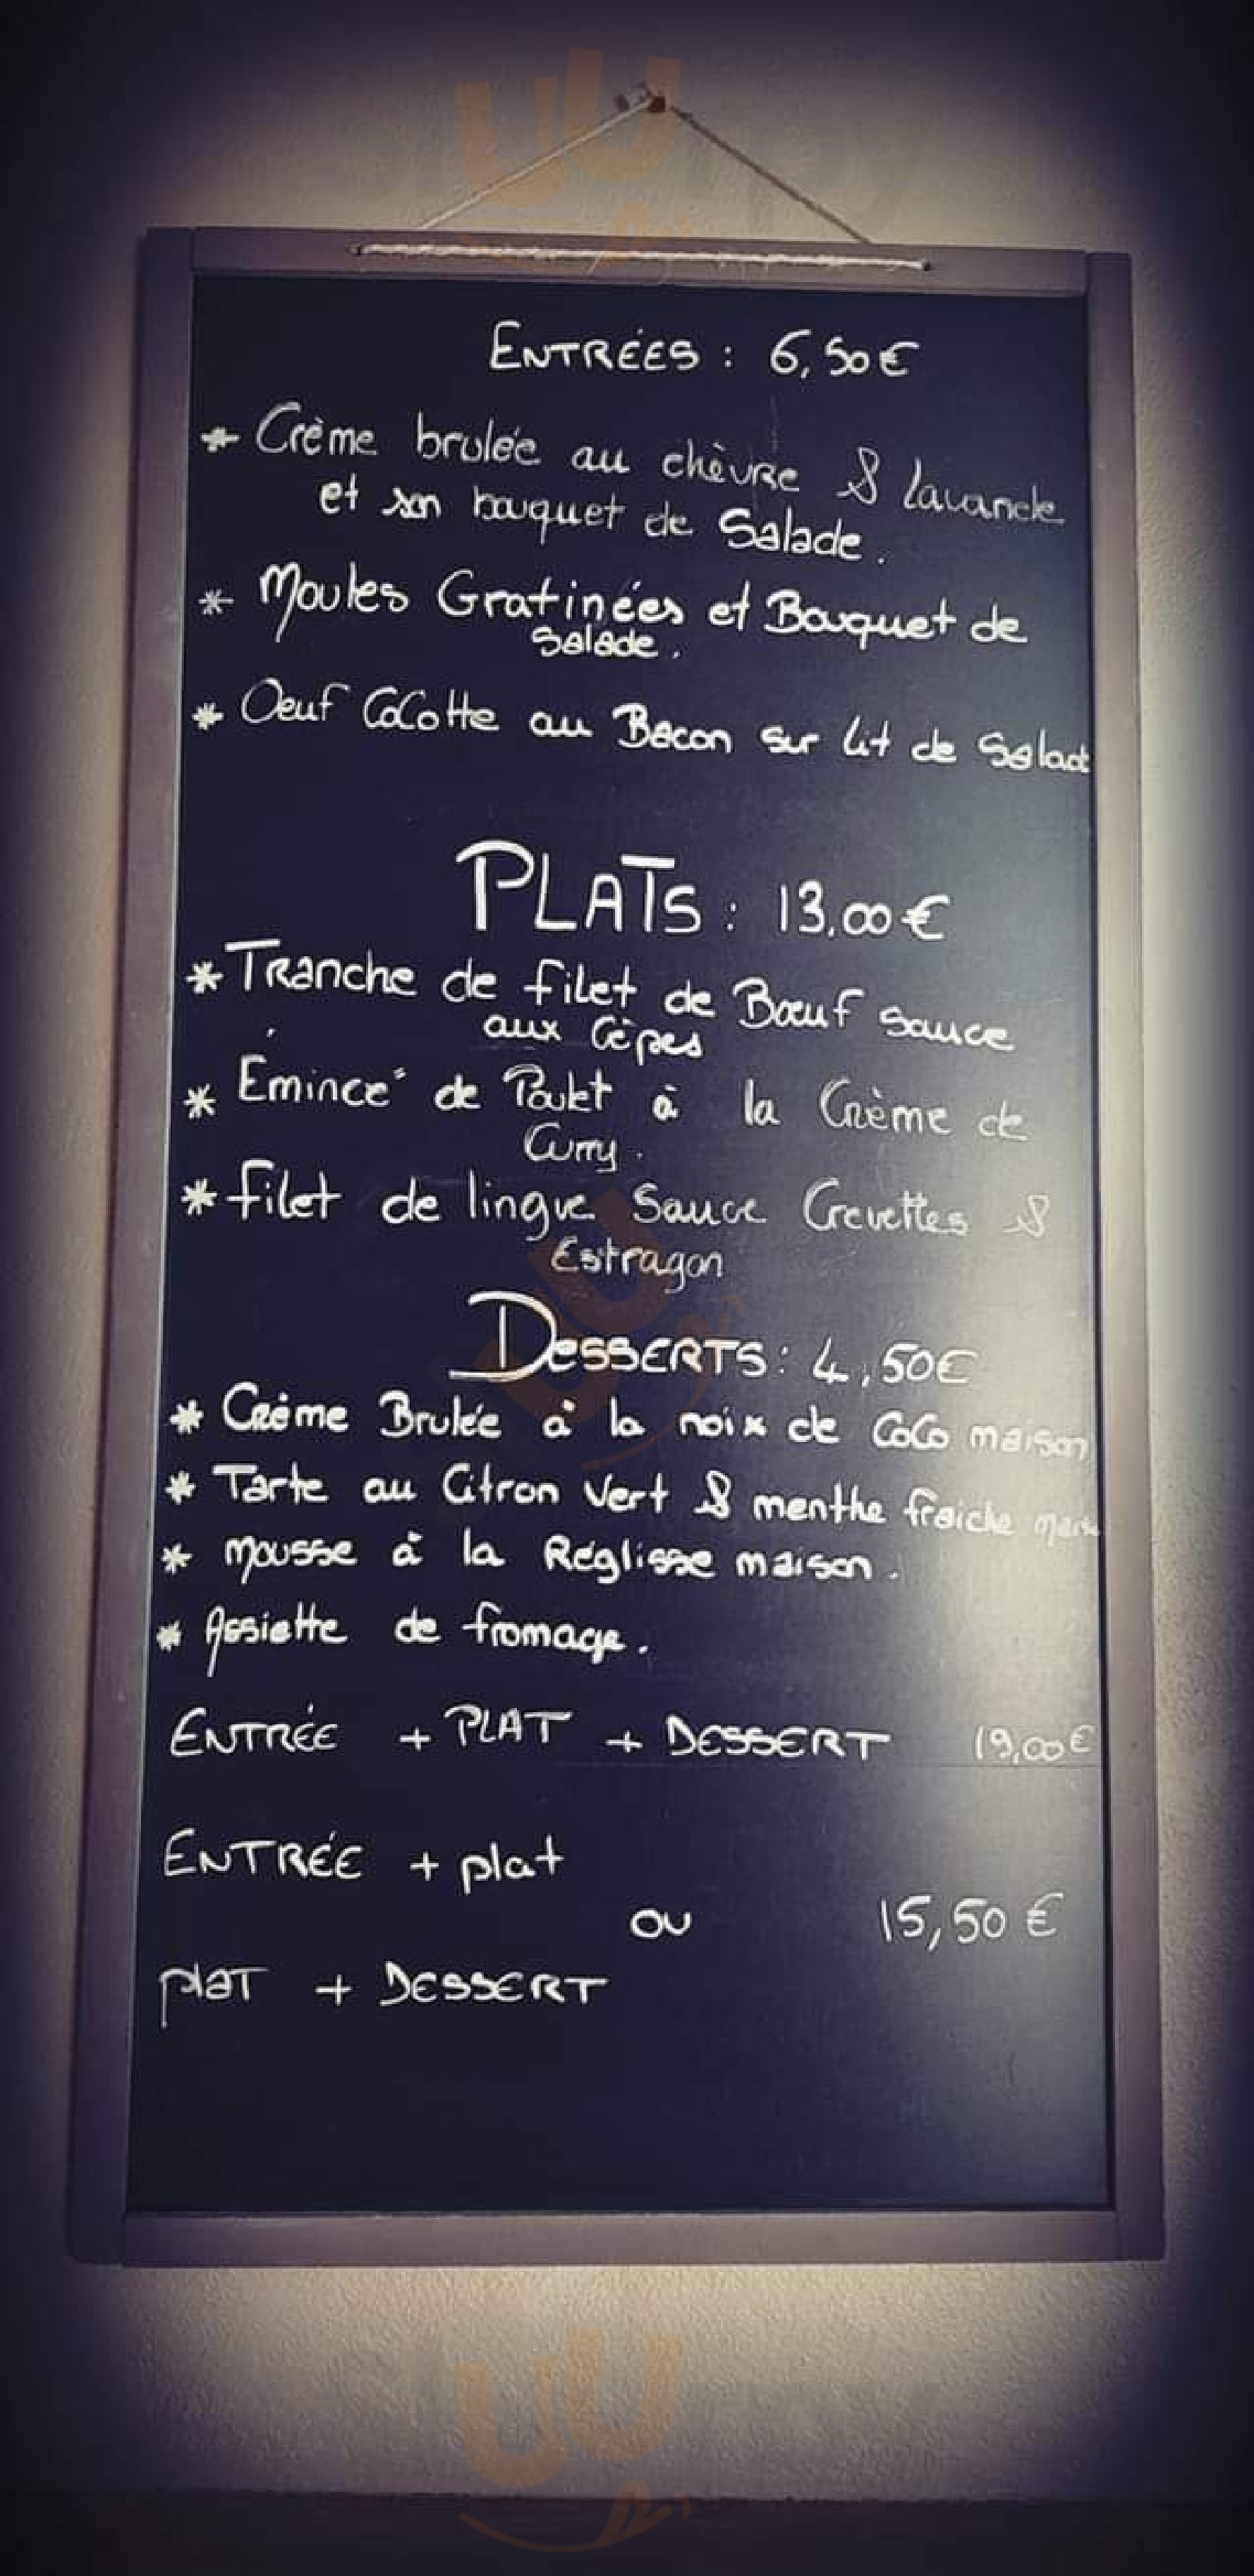 ENTRÉES : 6,50€
* Crème brulée au chèvre & lavande
et son bouquet de Salade.
* Moules Gratinées et Bouquet de
Salade.
* Oeuf CoCotte au Bacon sur lit de Salad
PLATS : 13,00€
* Tranche de filet de Bœuf sauce
aux Cèpes
* Émincé de Poulet à la Crème de
Curry.
* filet de lingue Sauce Crevettes &
Estragon
DESSERTS : 4,50€
* Crème Brulée à la noix de CoCo maison
* Tarte au Citron Vert & menthe fraiche
* mousse à la Réglisse maison.
* Assiette de fromage.
ENTRÉE + PLAT + DESSERT 19,00€
ENTRÉE + plat
ou 15,50€
plat + DESSERT